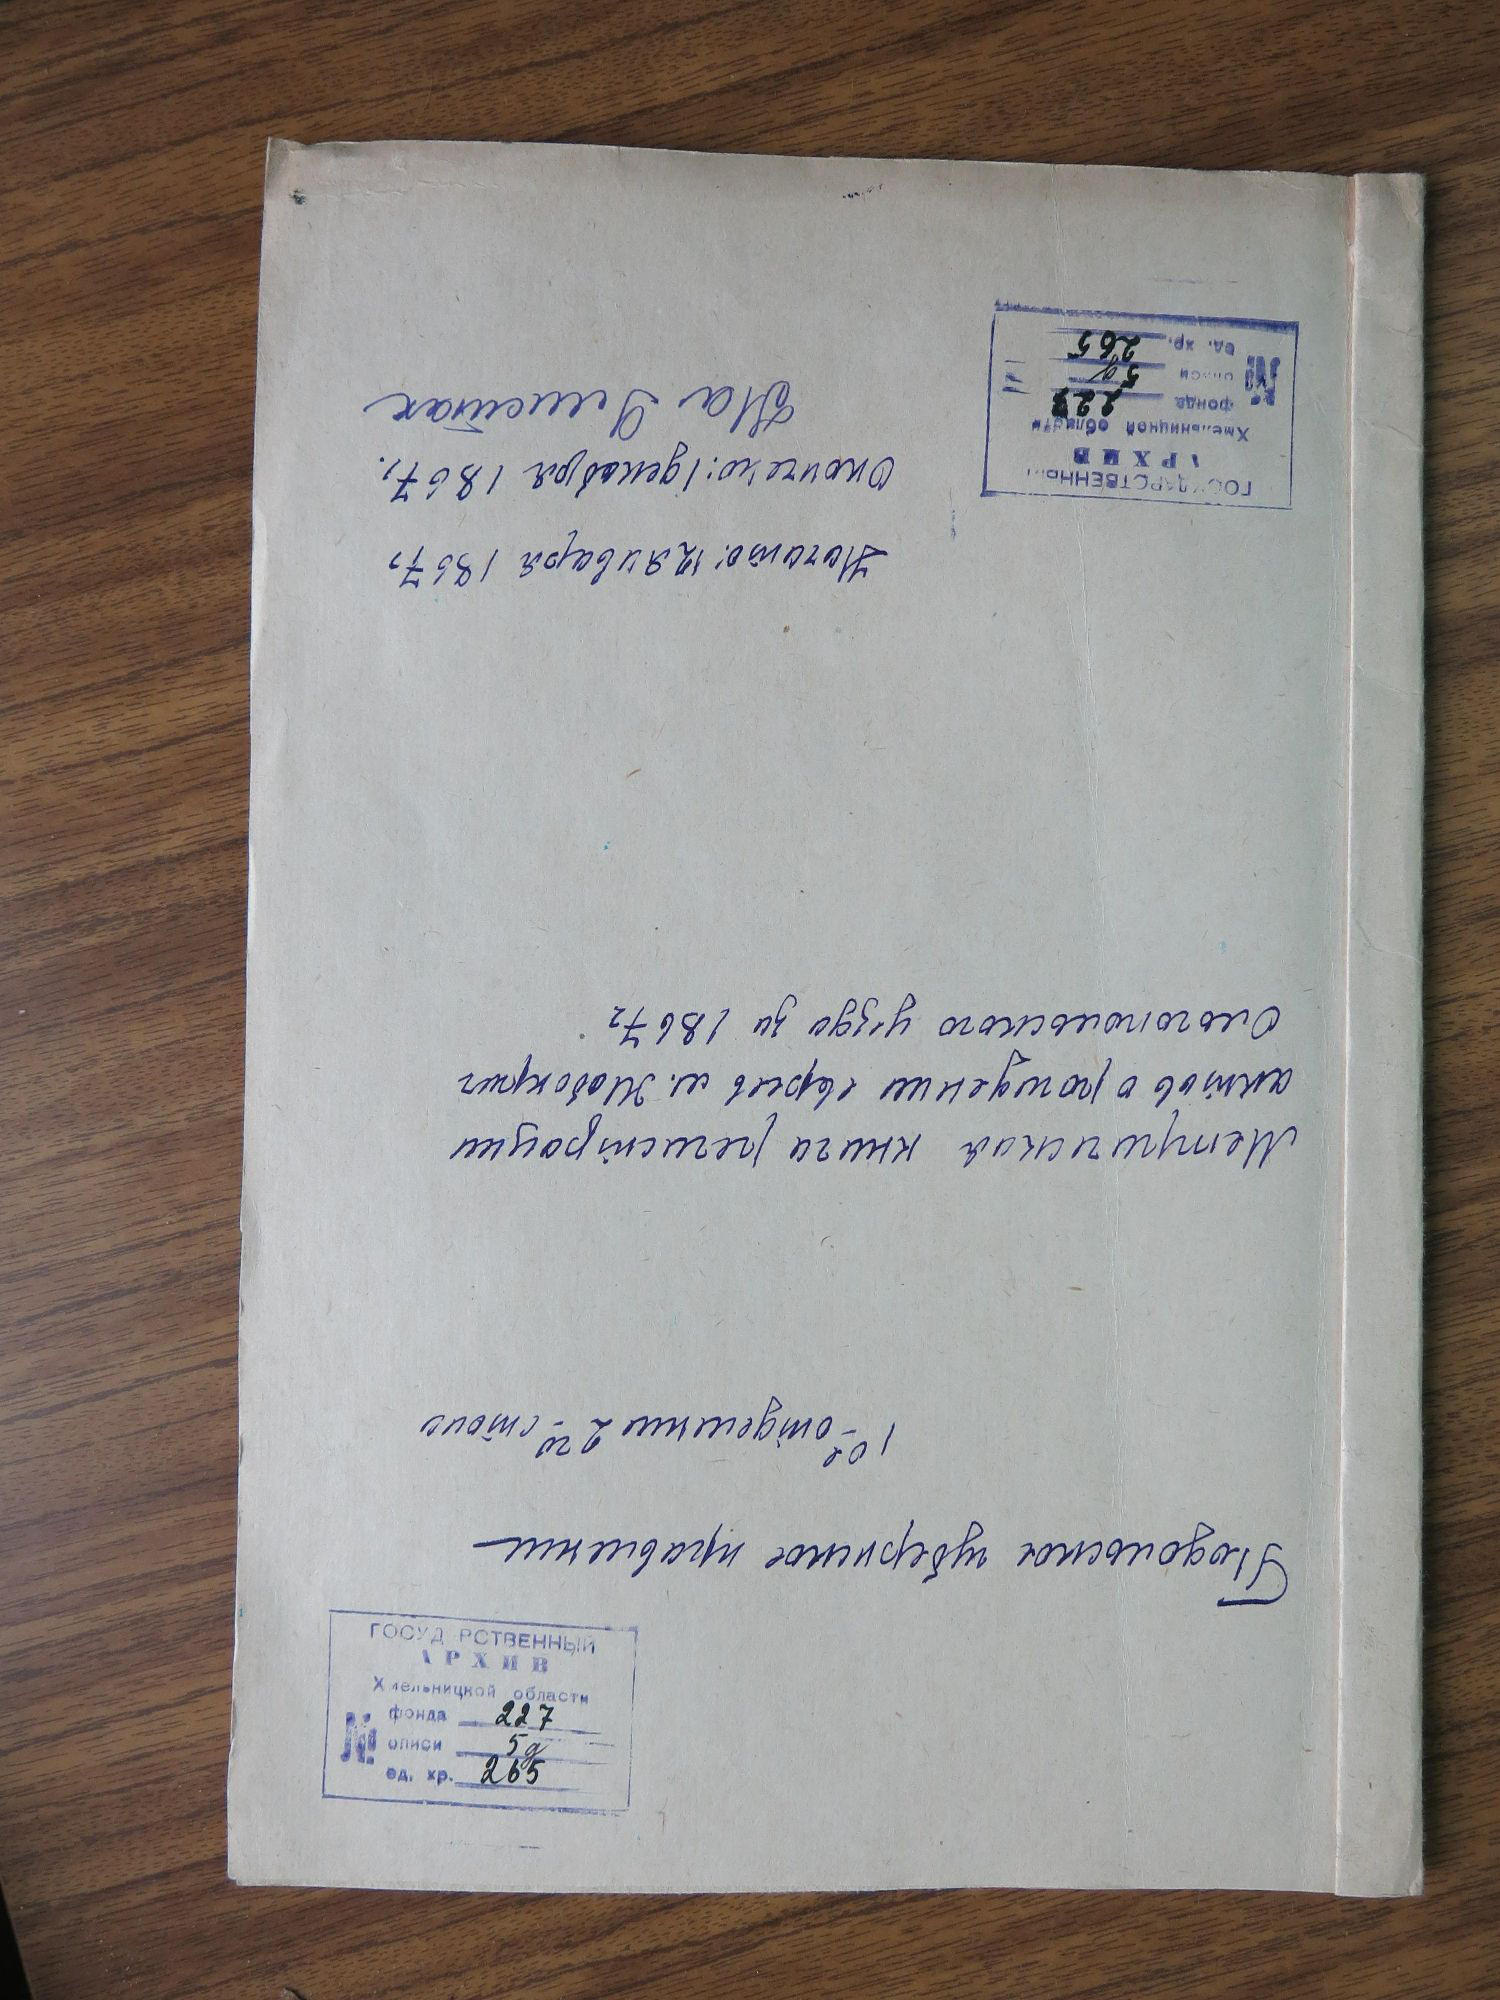 ГОСУДАРСТВЕННЫЙ
АРХИВ
Хмельницкой области
№
фонда 227
описи 5д
ед. хр. 265
Подольское губернское правление
1ое отделение 2го стола
Метрическая книга регистрации
актов о рождении евреев м. Жабокрич
Ольгопольского уезда за 1867г
Начато: 12 января 1867г
Окончено: 1 декабря 1867г.
На листах
ГОСУДАРСТВЕННЫЙ
АРХИВ
Хмельницкой области
№
фонда 227
описи 5д
ед. хр. 265